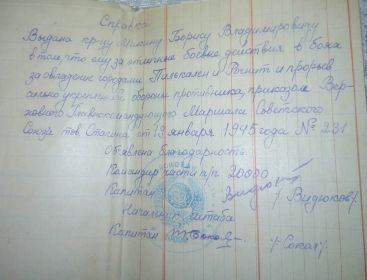 Справка
Выдана кр-цу Милину Борису Владимировичу
в том, что ему за отличные боевые действия в боях
за овладение городами Пилькален и Рагнит и прорыв
сильно укреплённой обороны противника, приказом Вер-
ховного Главнокомандующего Маршала Советского
Союза тов Сталина от 19 января 1945 года № 231
объявлена благодарность.
Командир части п/п 20000
Капитан /Видюков/.
Начальник штаба
Капитан /Сокол/.